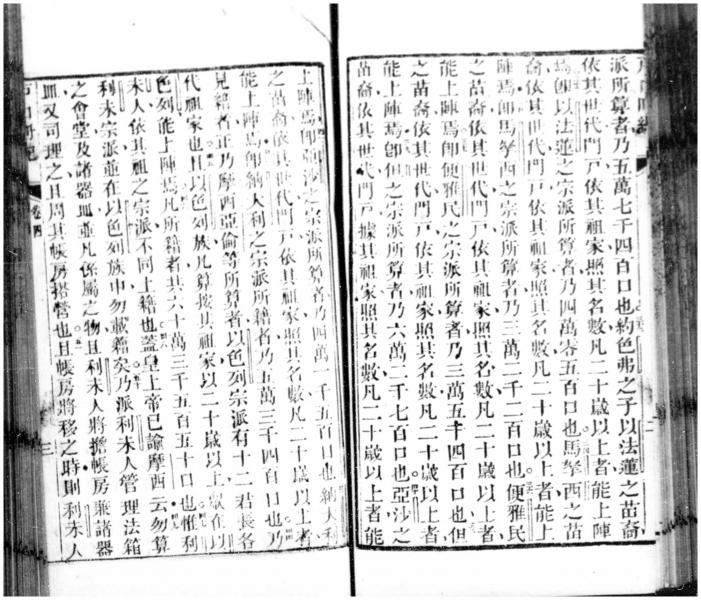 派所算者乃五萬七千四百口也約色弗之子以法蓮之苗裔
依其世代門戶依其祖家照其名數凡二十歲以上者能上陣
焉卽以法蓮之宗派所算者乃四萬零五百口也馬拏西之苗
裔依其世代門戶依其祖家照其名數凡二十歲以上者能上
陣焉卽馬拏西之宗派所算者乃三萬二千二百口也便雅民
之苗裔依其世代門戶依其祖家照其名數凡二十歲以上者
能上陣焉卽便雅民之宗派所算者乃三萬五千四百口也但
之苗裔依其世代門戶依其祖家照其名數凡二十歲以上者
能上陣焉卽但之宗派所算者乃六萬二千七百口也亞沙之
苗裔依其世代門戶據其祖家照其名數凡二十歲以上者能
二
上陣焉卽沙之宗派所算者乃四萬千五百口也納大利
之苗裔依其世代門戶依其祖家照其名數凡二十歲以上者
能上陣焉卽納大利之宗派所籍者乃五萬三千四百口也乃
見籍者正乃摩西亞倫等所算者以色列宗派有十二君長各
代祖家也且以色列族凡算按其祖家以二十歲以上在以
色列能上陣焉凡所籍者共六十萬三千五百五十口也惟利
未人依其祖之宗派不同上籍也蓋皇上帝已諭摩西云勿算
利未宗派並在以色列族中勿載籍矣乃派利未人管理法箱
之會堂及諸器皿並凡係屬之物且利未人將擔帳房兼諸器
皿又司理之且周其帳房搭營也且帳房將移之時則利未人
卷四
三